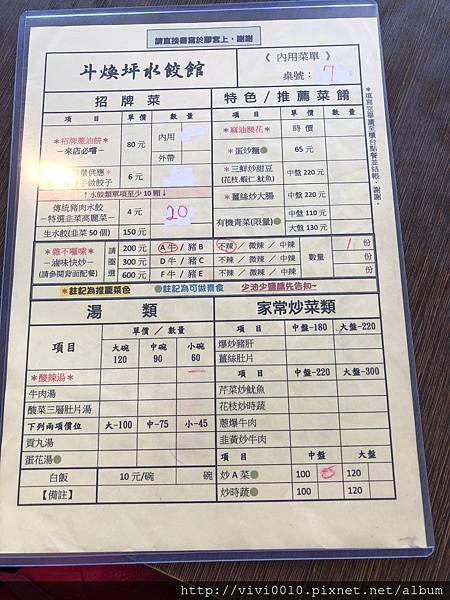 請直接書寫於膠套上，謝謝
斗煥坪水餃館
《 內用菜單 》
桌號： 7
招牌菜
項 目 單 價 數 量
＊招牌蔥油餅＊
－來店必嚐－
80 元
內用
外帶
供應＊
手做餃子
6 元
↑水餃類單項至少 10 顆↓
傳統豬肉水餃
－特選韭菜高麗菜－
4 元
20
生水餃(韭菜 50 個)
150 元
特色/推薦菜餚
項 目 單 價 數 量
＊麻油腰花＊ 時 價
＊蛋炒麵 65 元
＊三鮮炒甜豆
(花枝.蝦仁.魷魚)
中盤 220 元
＊薑絲炒大腸 中盤 220 元
有機青菜(限量)
中盤 110 元
大盤 130 元
＊雜不囉嗦＊
－滷味快炒－
(請參閱背面配菜)
請圈選
200 元 A 牛 / 豬 B 不辣 / 微辣 / 中辣
300 元 C 牛 / 豬 D 不辣 / 微辣 / 中辣
600 元 F 牛 / 豬 E 不辣 / 微辣 / 中辣
數量 1 份
份
＊註記為推薦菜色
註記為可做素食
少油少鹽請先告知~
＊填寫完單請至櫃台點餐並結帳，謝謝
湯 類
項目
單價 / 數量
大碗 中碗 小碗
120 90 60
＊酸辣湯＊
牛肉湯
酸菜三層肚片湯
下列兩項價位 大-100 中-75 小-45
貢丸湯
蛋花湯
白飯 10 元/碗 碗
【備註】
家常炒菜類
項 目 中盤-180 大盤-220
爆炒豬肝
薑絲肚片
項 目 中盤-220 大盤-300
芹菜炒魷魚
花枝炒時蔬
蔥爆牛肉
韭黃炒牛肉
項 目 中盤 大盤
炒 A 菜 100 120
炒時蔬 100 120
http://vivi0010.pixnet.net/album